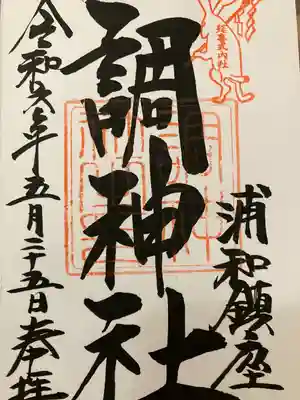 浦和鎮座
延喜式内社
調神社
令和六年五月二十五日奉拝